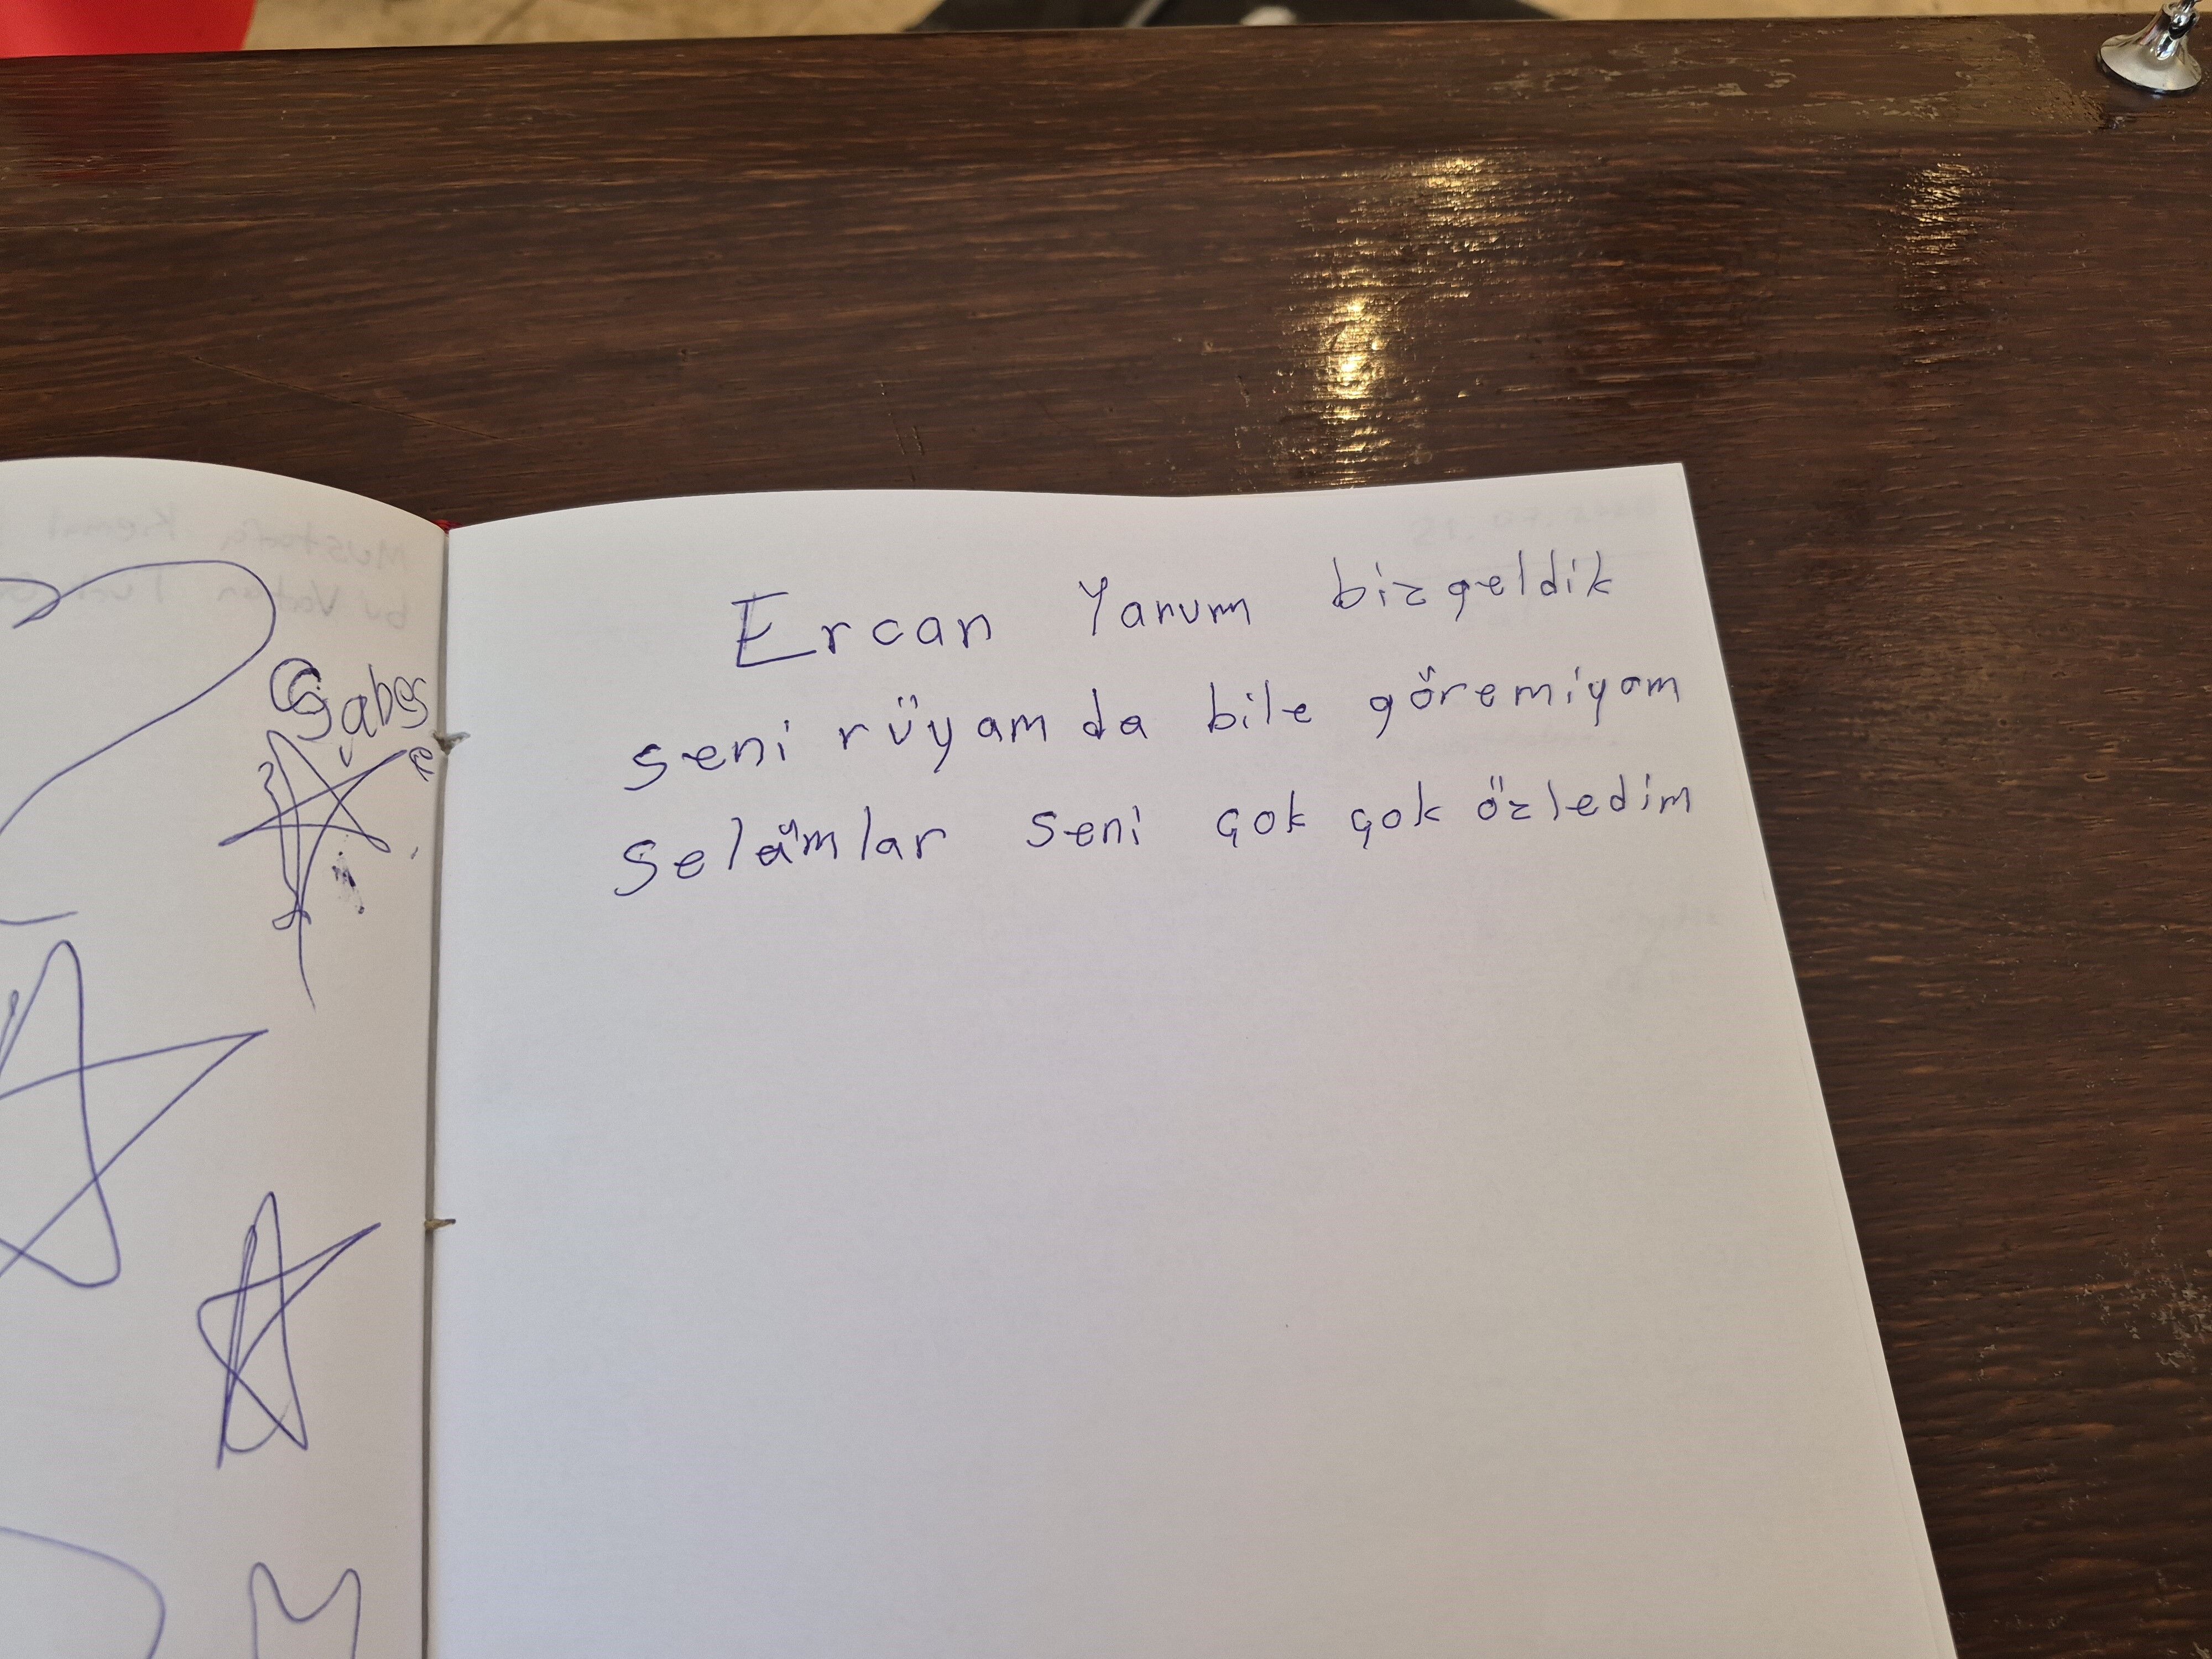 Ercan Yanum bizgeldik
seni rüyam da bile göremiyom
selâmlar seni çok çok özledim